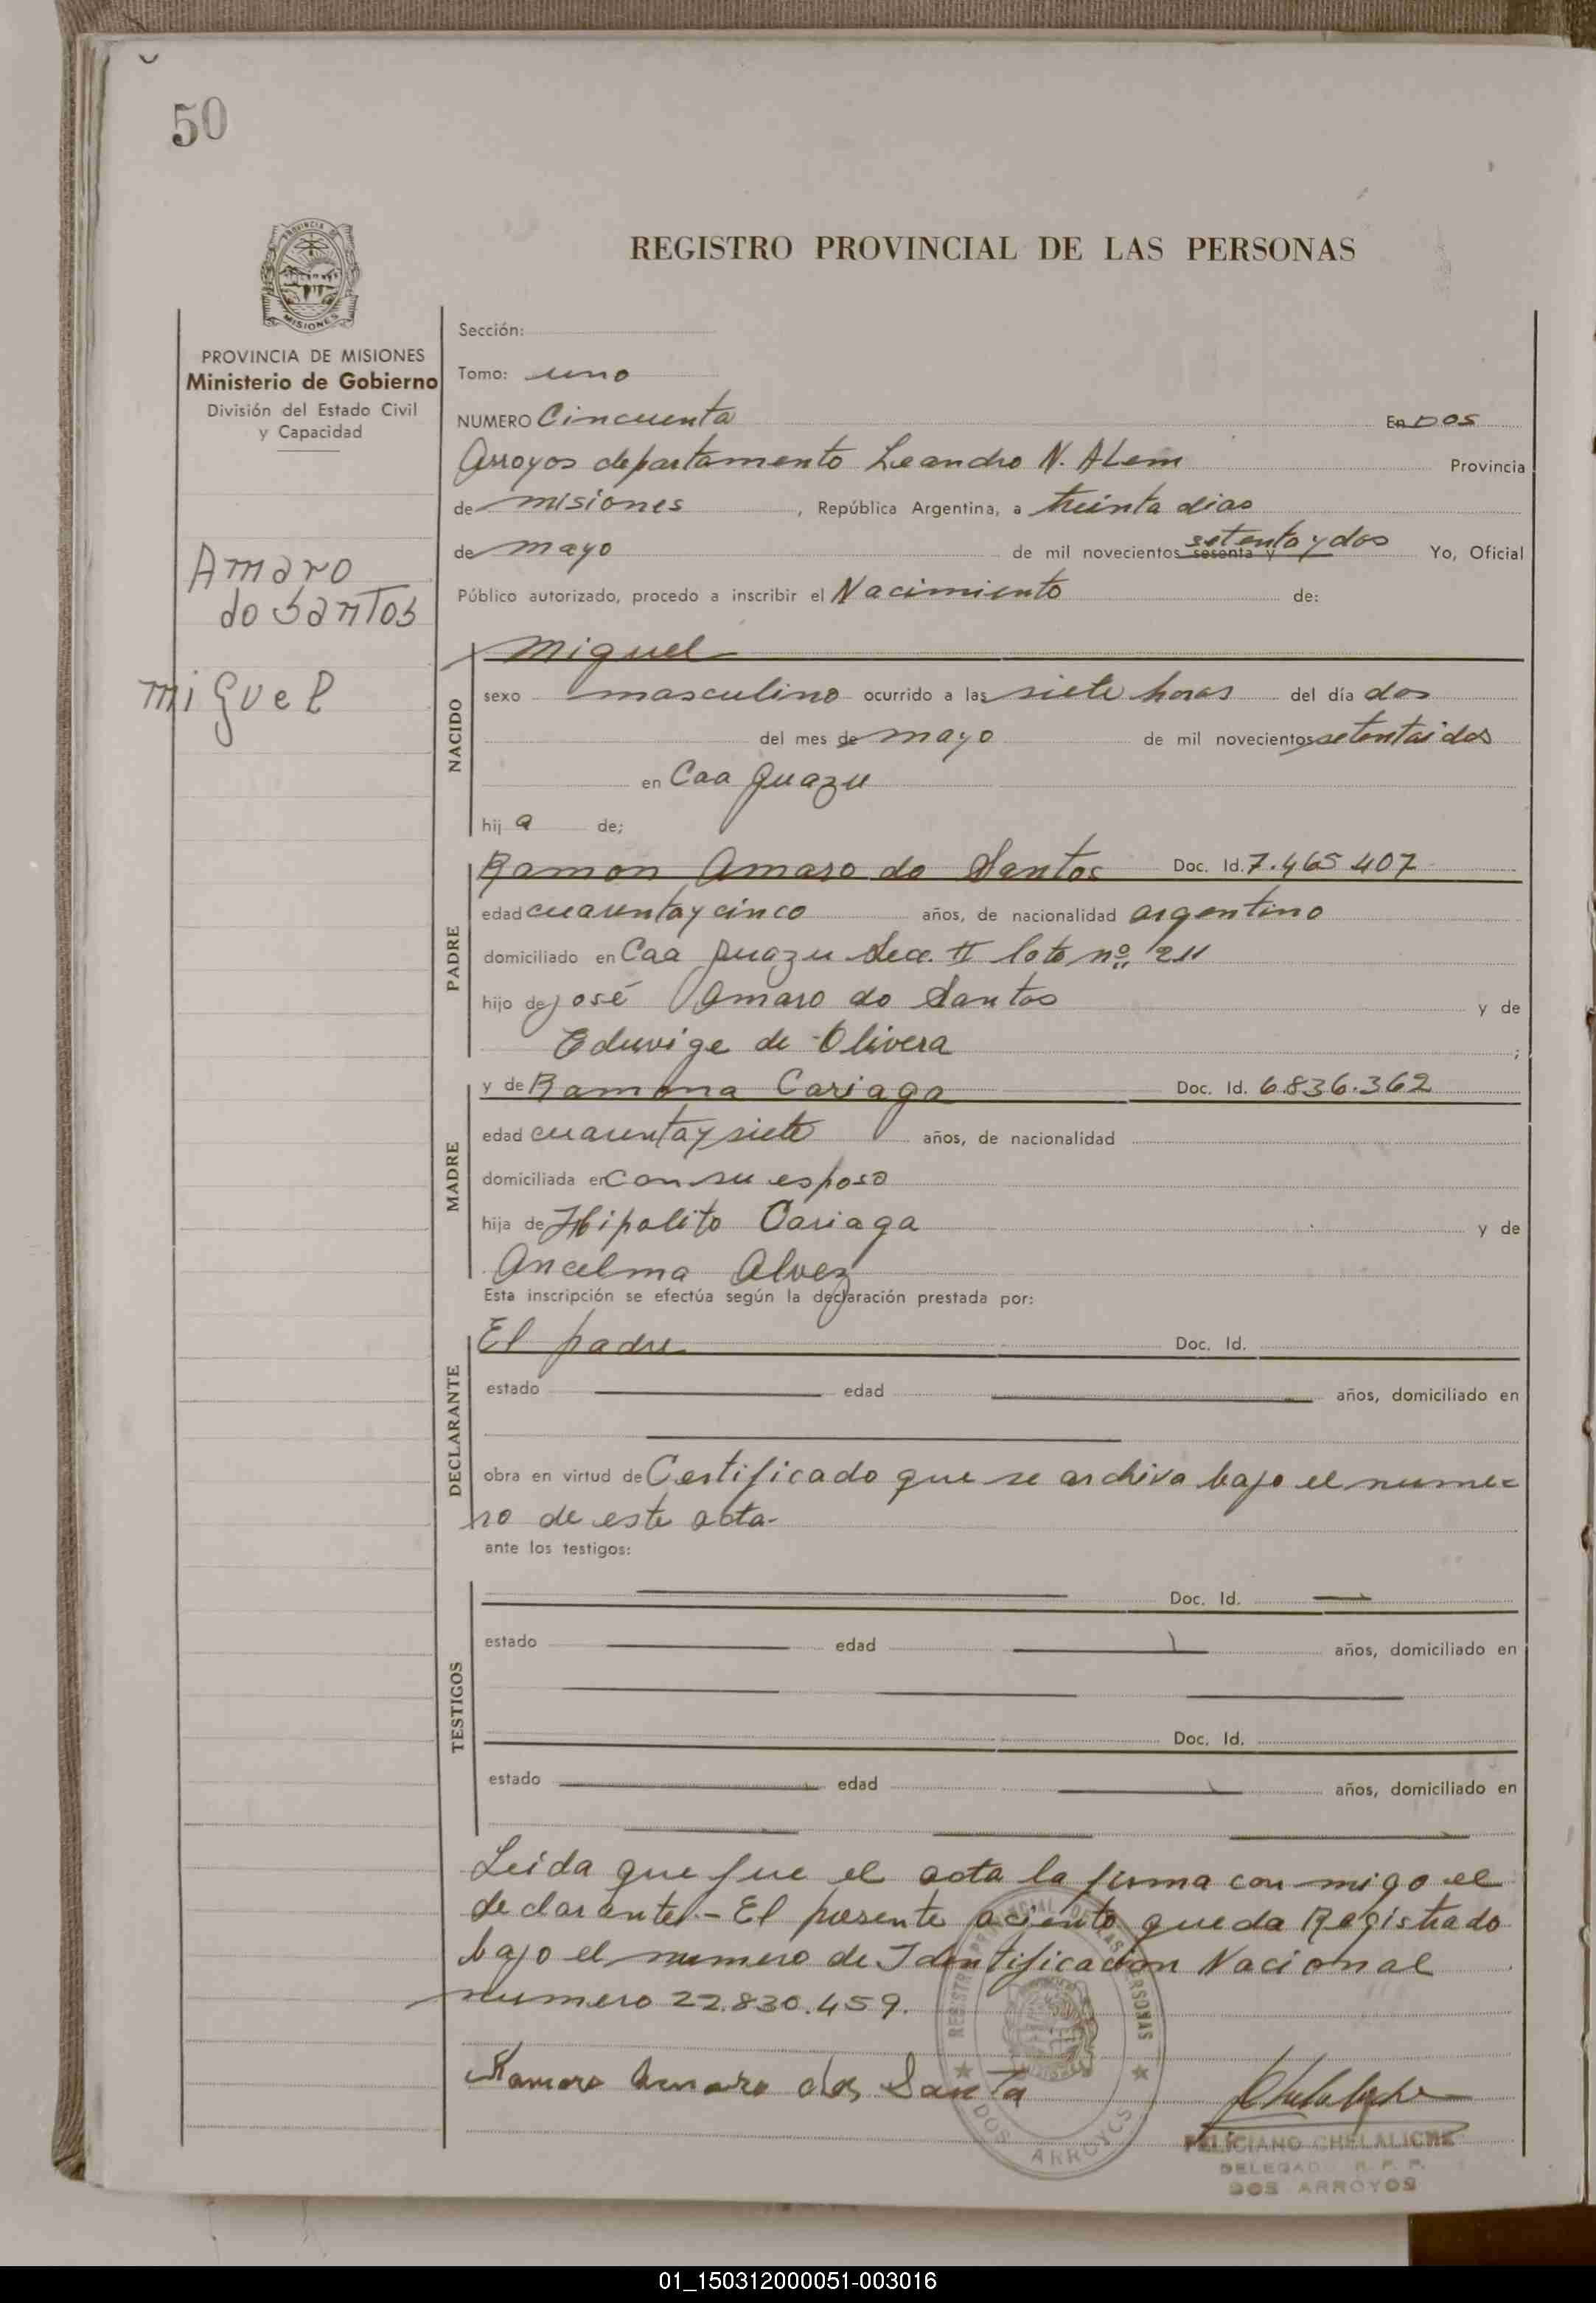 50
REGISTRO PROVINCIAL DE LAS PERSONAS
MISIONES
PROVINCIA DE MISIONES
Ministerio de Gobierno
División del Estado Civil
y Capacidad
Amaro
do Santos
miguel
Sección:
Tomo: uno
NUMERO Cincuenta En DOS
Arroyos departamento Leandro N. Alem Provincia
de misiones, República Argentina, a treinta dias
de mayo de mil novecientos sesenta y setenta y dos Yo, Oficial
Público autorizado, procedo a inscribir el Nacimiento de:
NACIDO
Miguel
sexo masculino ocurrido a las siete horas del día dos
del mes de mayo de mil novecientos setentaidos
en Caa Guazu
hij a de;
PADRE
Ramon Amaro do Santos Doc. Id. 7.465 407
edad cuarenta y cinco años, de nacionalidad argentino
domiciliado en Caa Guazu Sec. II lote nº 211
hijo de José Amaro do Santos y de
Eduvige de Olivera ;
MADRE
y de Ramona Cariaga Doc. Id. 6.836.362
edad cuarenta y siete años, de nacionalidad
domiciliada en con su esposo
hija de Hipolito Cariaga y de
Ancelma Alvez
Esta inscripción se efectúa según la declaración prestada por:
DECLARANTE
El padre Doc. Id.
estado edad años, domiciliado en
obra en virtud de Certificado que se archiva bajo el nume=
ro de este acta-
ante los testigos:
TESTIGOS
Doc. Id.
estado edad años, domiciliado en
Doc. Id.
estado edad años, domiciliado en
Leida que fue el acta la firma con migo el
declarante.- El presente aciento queda Registrado
bajo el numero de Identificacion Nacional
numero 22.830.459.
REGISTRO PROVINCIAL DE LAS PERSONAS
DOS ARROYOS
Ramon Amaro dos Santo
FELICIANO CHELALICHE
DELEGADO R. P. P.
DOS ARROYOS
01_150312000051-003016